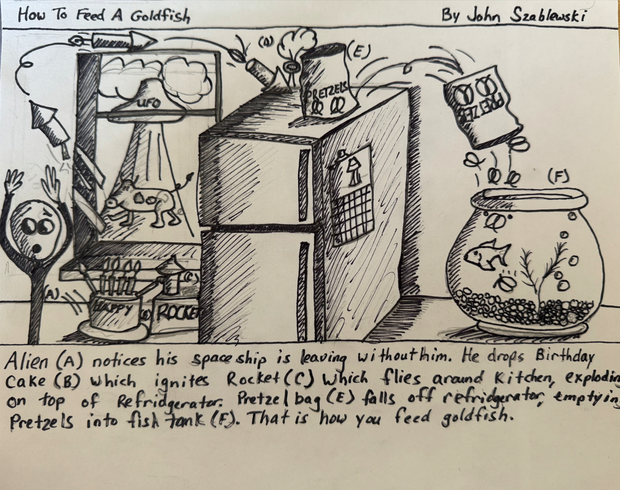 How To Feed A Goldfish
By John Szablewski
(D)
(E)
PRETZELS
PRETZEL
UFO
(F)
(A)
(C)
HAPPY
(B)
ROCKE
Alien (A) notices his space ship is leaving without him. He drops Birthday
Cake (B) which ignites Rocket (C) which flies around Kitchen, explodin
on top of Refridgerator. Pretzel bag (E) falls off refridgerator, emptying
Pretzels into fish tank (F). That is how you feed goldfish.